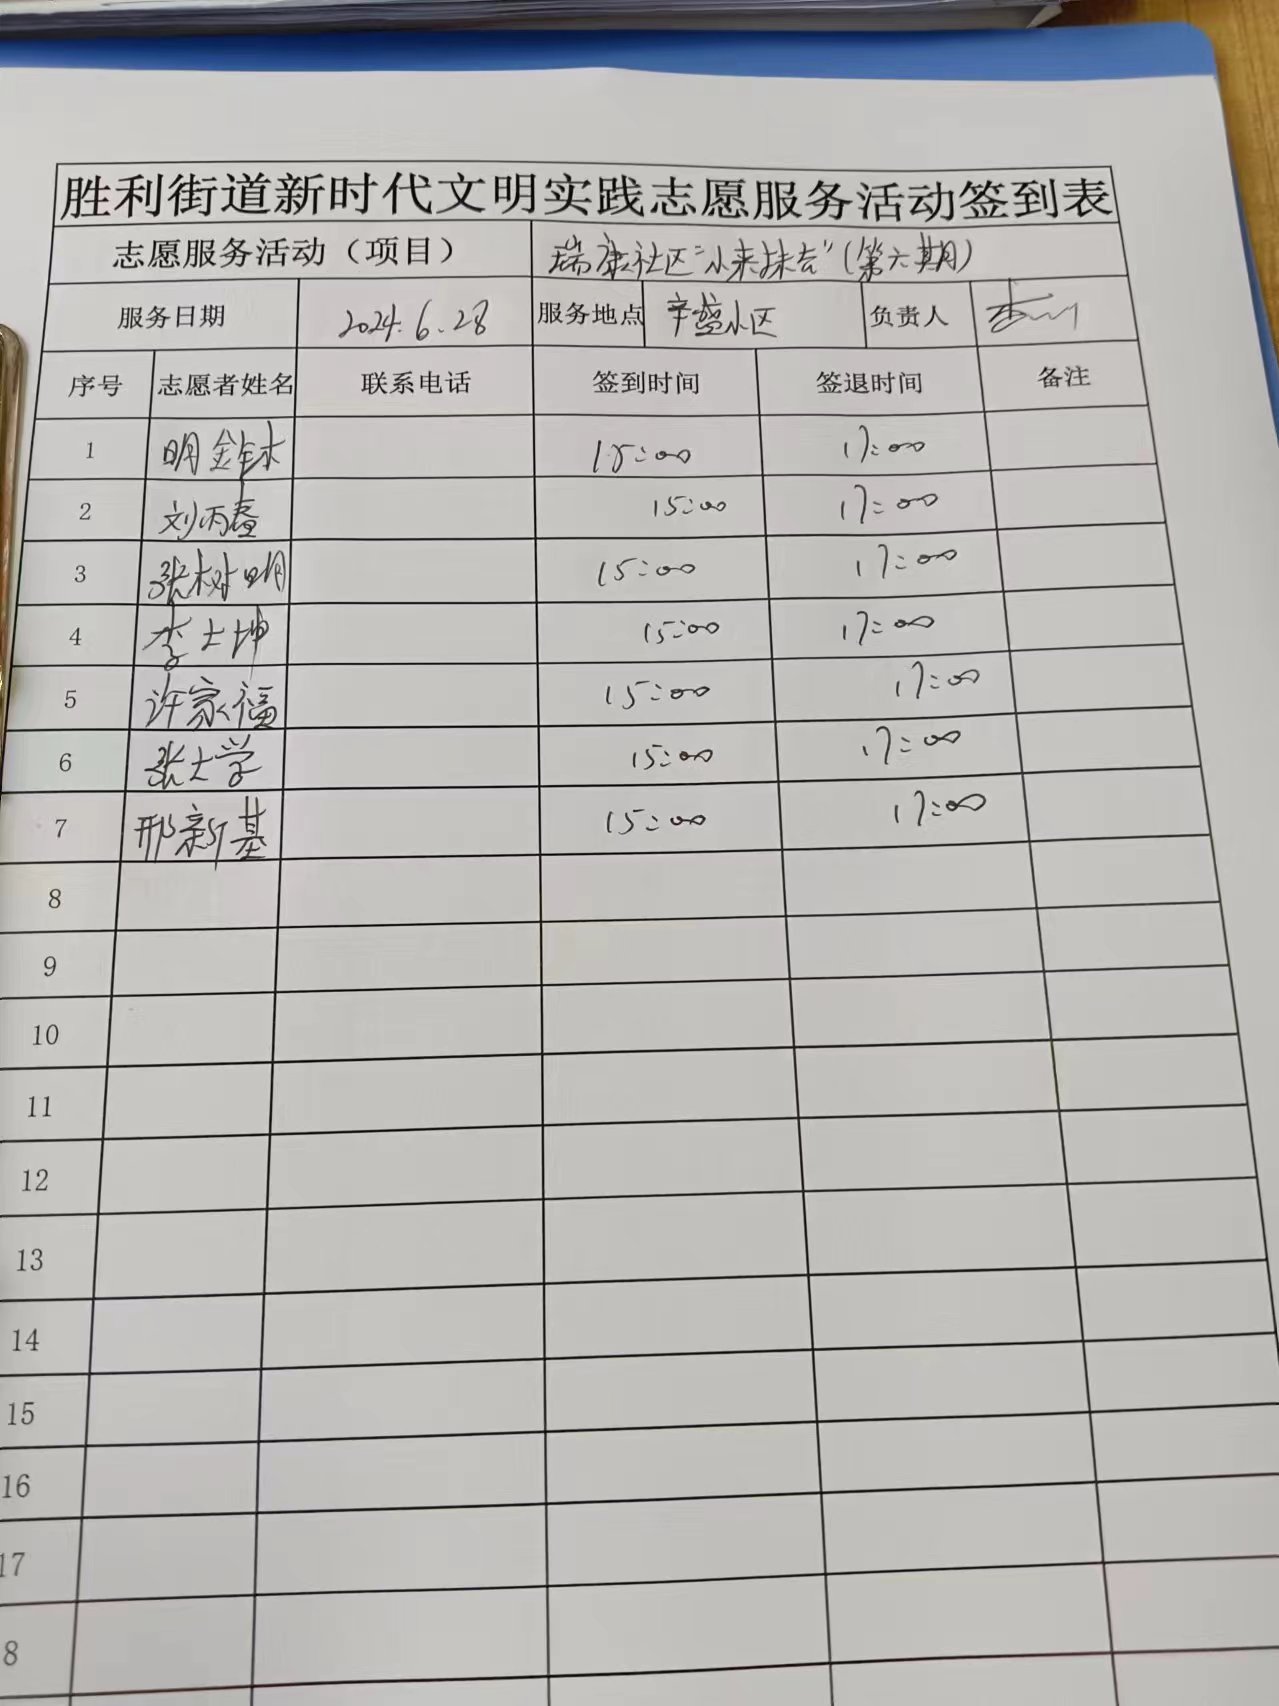 胜利街道新时代文明实践志愿服务活动签到表
志愿服务活动（项目） 瑞康社区“小来抹去”（第六期）
服务日期 2024.6.28 服务地点 辛盛小区 负责人
序号 志愿者姓名 联系电话 签到时间 签退时间 备注
1 明 15:00 17:00
2 刘丙春 15:00 17:00
3 张树明 15:00 17:00
4 李士坤 15:00 17:00
5 许家福 15:00 17:00
6 张士学 15:00 17:00
7 邢新基 15:00 17:00
8
9
10
11
12
13
14
15
16
17
8